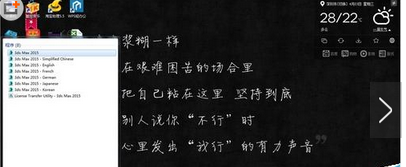 程序 (8)
3ds Max 2015
3ds Max 2015 - Simplified Chinese
3ds Max 2015 - English
3ds Max 2015 - French
3ds Max 2015 - German
3ds Max 2015 - Japanese
3ds Max 2015 - Korean
License Transfer Utility - 3ds Max 2015
浆糊一样
在艰难困苦的场合里
把自己粘在这里 坚持到底
别人说你“不行”时
心里发出“我行”的有力声音”
28/22℃